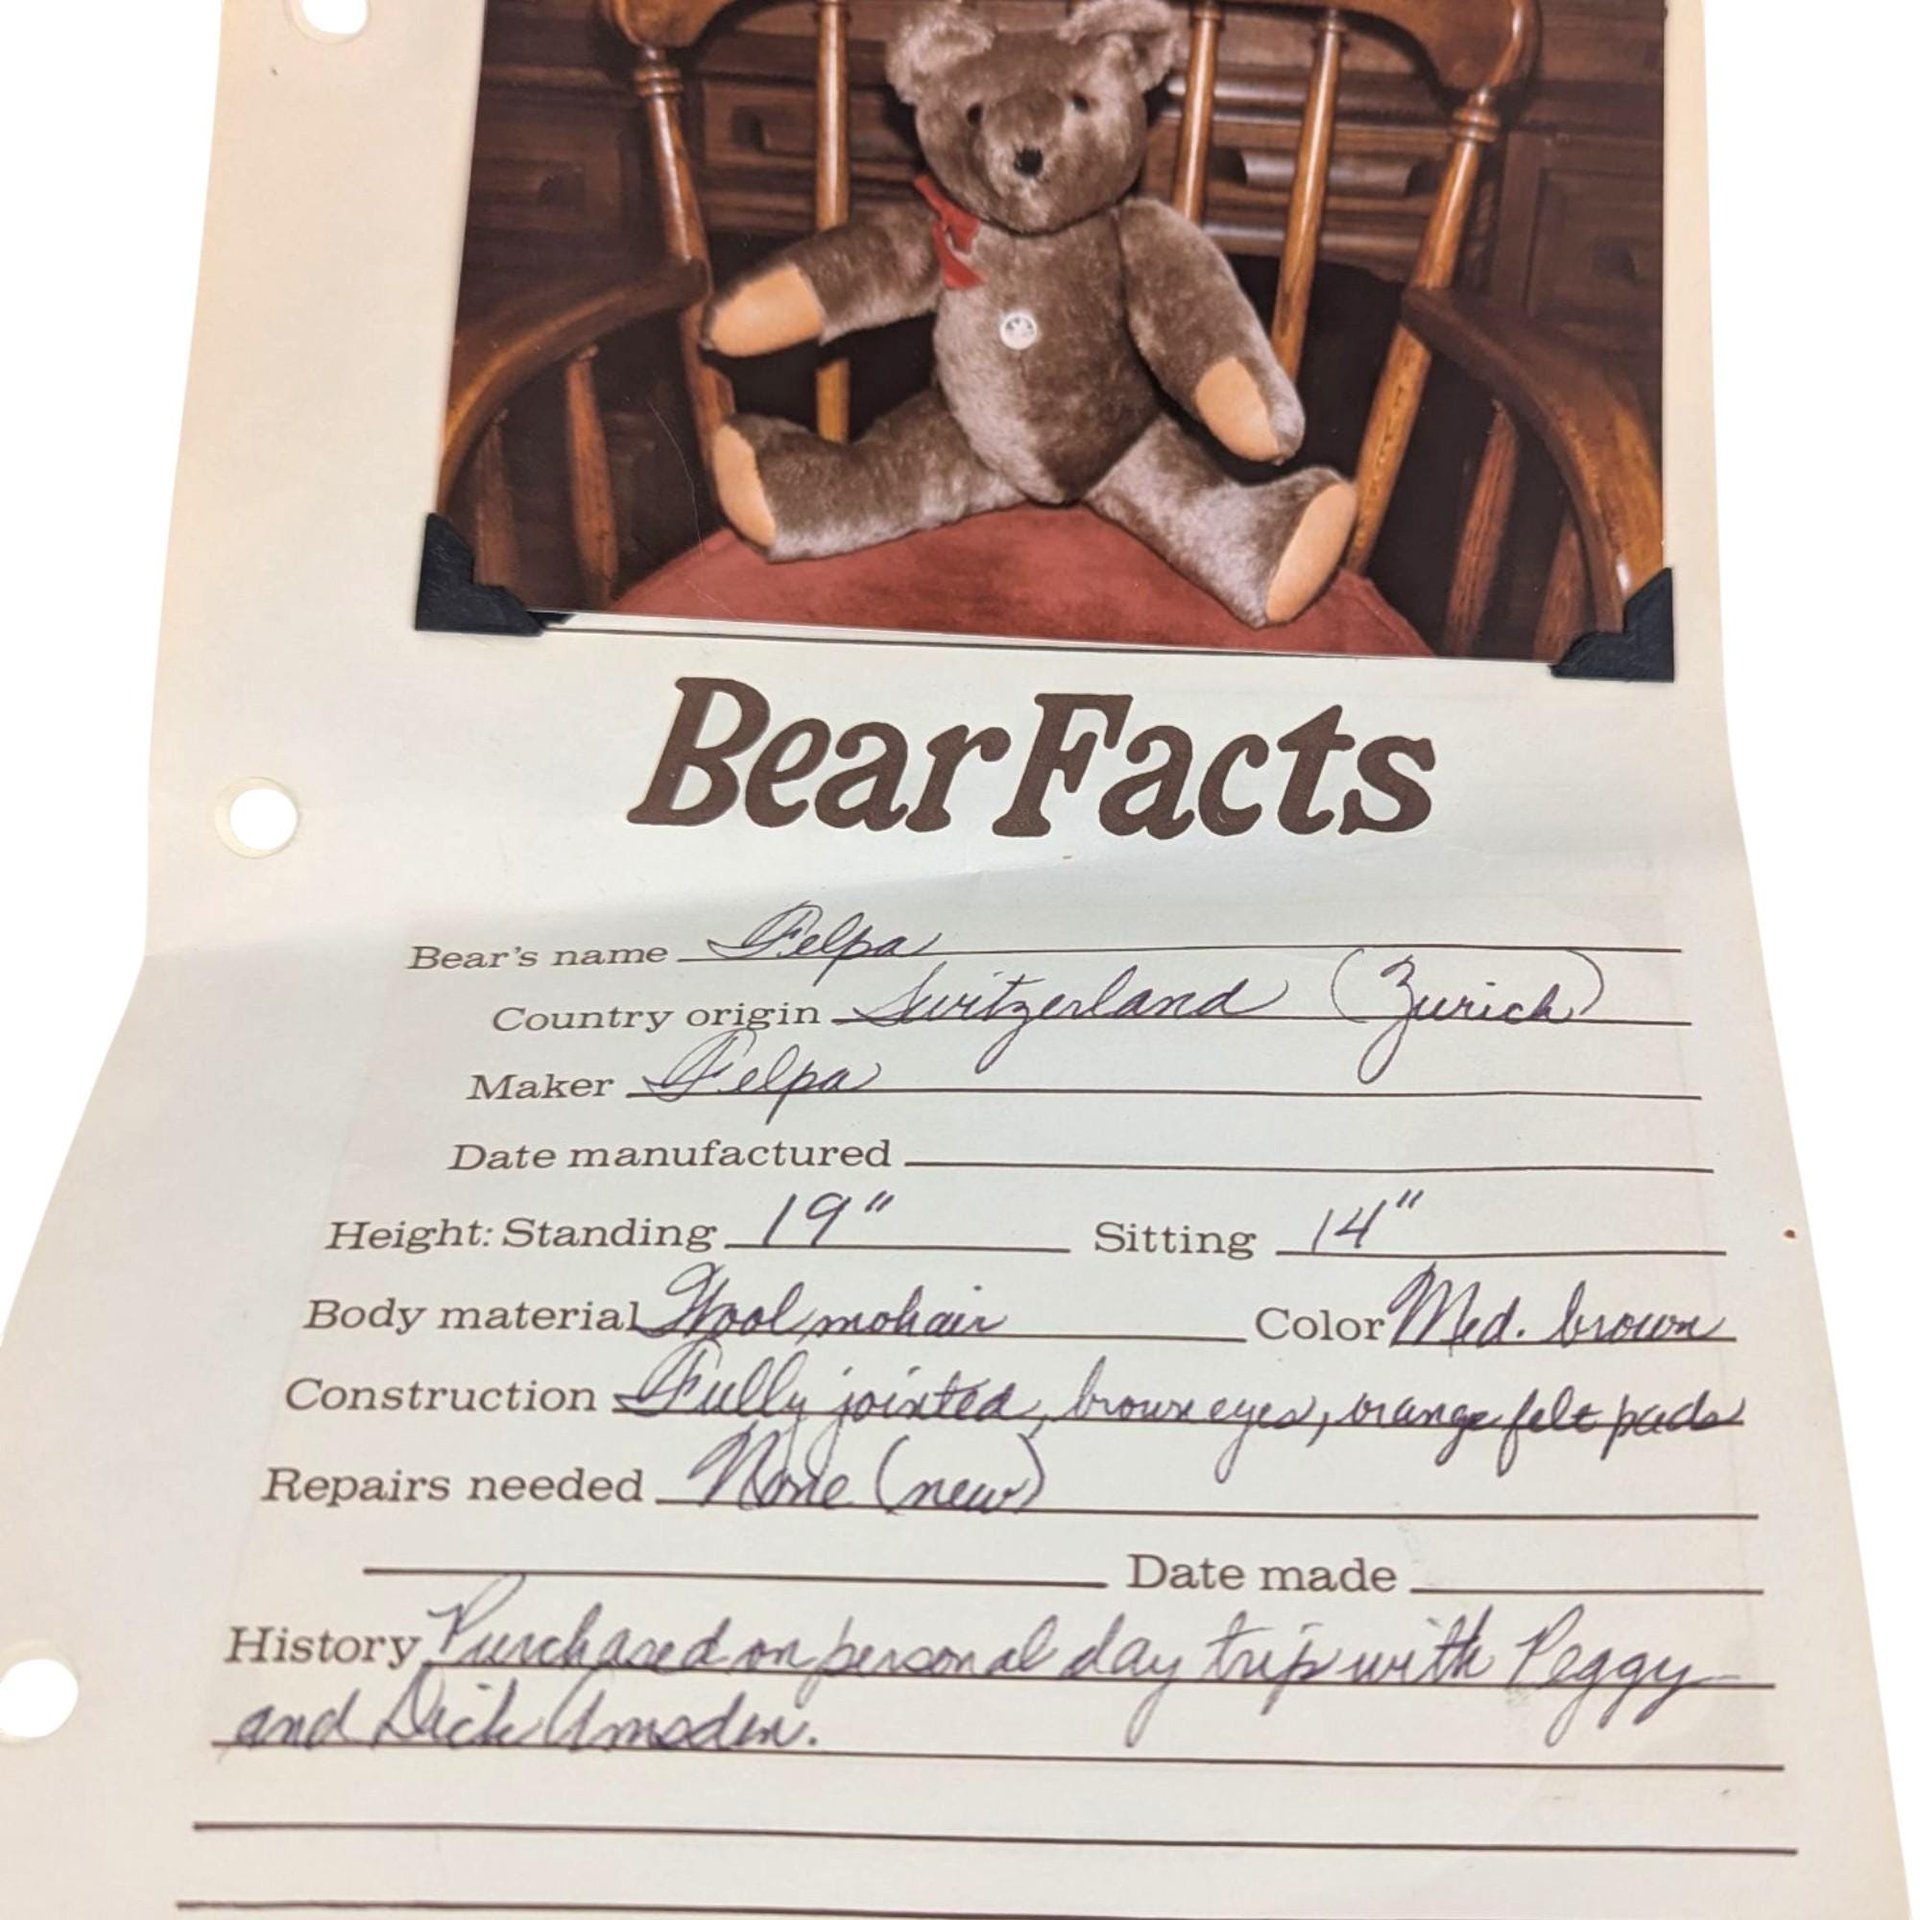 Bear Facts
Bear's name Felpa
Country origin Switzerland (Zurich)
Maker Felpa
Date manufactured
Height: Standing 19" Sitting 14"
Body material Wool mohair Color Med. brown
Construction Fully jointed, brown eyes, orange felt pads
Repairs needed None (new)
Date made
History Purchased on personal day trip with Peggy
and Dick Amsden.